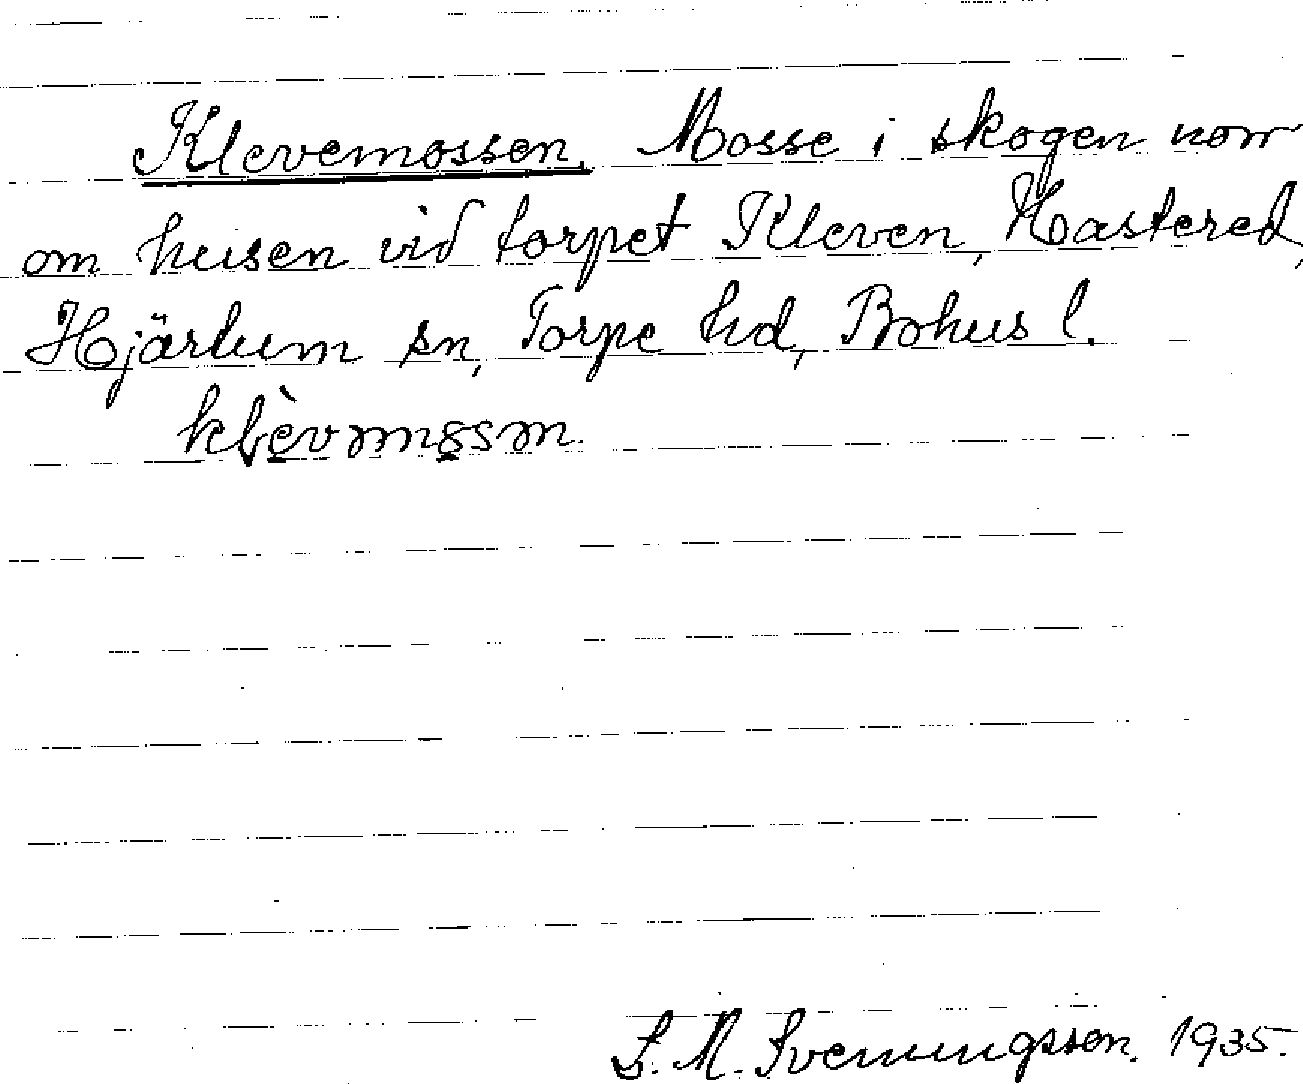 Klevemossen. Mosse i skogen norr
om husen vid torpet Kleven, Hastered,
Hjärtum sn, Torpe hd, Bohus l.
S. M. Svenningsson. 1935.